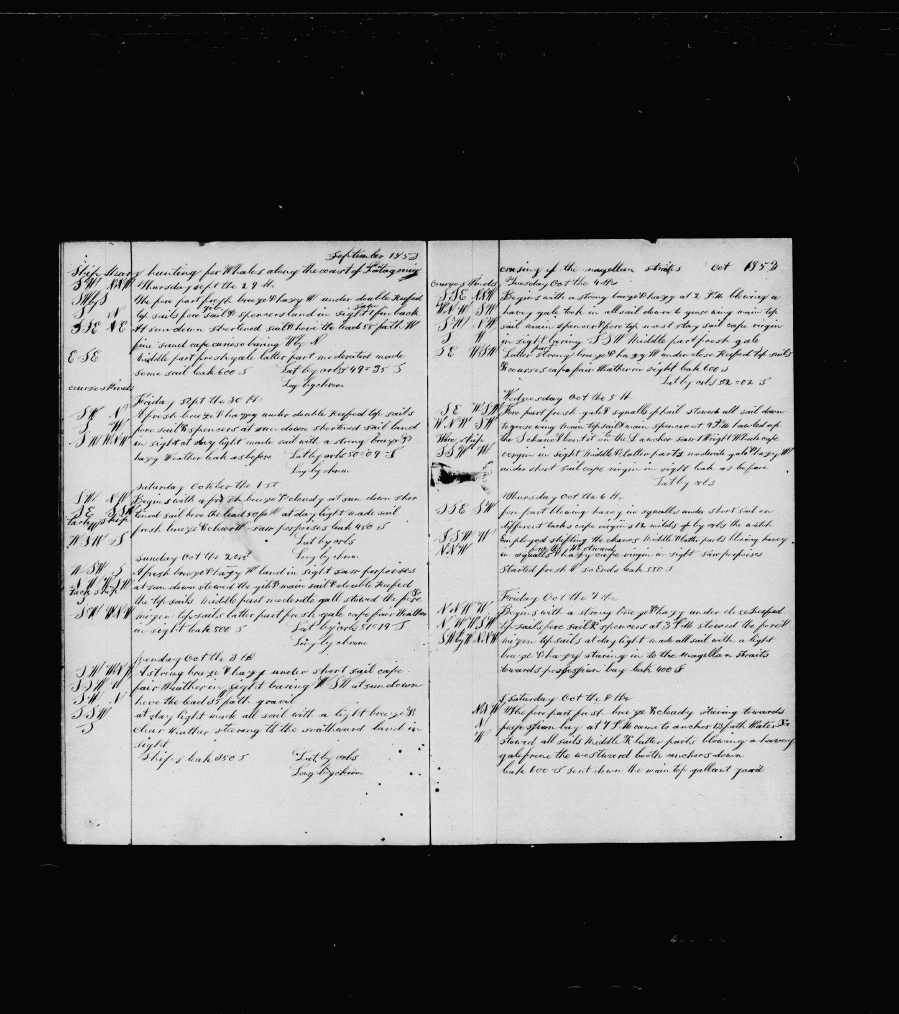 September 1853
Ship Mary hunting for Whales along the coast of Patagonia
S W NNW Thursday Sept the 29 th
SW by S the fore part fresh breeze & hazy W under double Reefed
S N top sails fore sail & spencers land in sight fin back
S S E N E At sun down shortened sail & hove the lead 55 fath W
fine sand cape bearing W by N
E S E Middle part fresh gale latter part moderated made
some sail leak 600 S Lat by orbs 49=35 S
Log by chrom
courses Winds
Friday Sept the 30 th
S W N A fresh breeze & hazy under double Reefed top sails
S W fore sail & spencers at sun down shortened sail land
S W WNW in sight at day light made sail with a strong breeze &
hazy Weather leak as before Lat by orbs 50=09 S
Log by chrom
Saturday October the 1 st
S W N W Begins with a fresh breeze & cloudy at sun down shor
S E S S W tened sail hove the lead 50 fa W at day light made sail
tacked ship fresh breeze & clear W saw porpoises leak 450 S
W S W S Lat by orbs
Long by chrom
Sunday Oct the 2 ond
W S W S A fresh breeze & hazy W land in sight saw porpoises
at sun down stowed the gib & main sail & double Reefed
tack ship the top sails Middle part moderate gale stowed the fore &
S mizen top sails latter part fresh gale cape fair Weather
S W WNW in sight leak 500 S Lat by orbs 51=19 S
Long by chrom
Monday Oct the 3 th
S W WNW A strong breeze & hazy under short sail cape
S S W W fair Weather in sight baring W S W at sun down
S W N hove the lead 55 fath gravil
S S W at day light made all sail with a light breeze &
S clear Weather stering to the southward land in
sight
Ships leak 350 S Lat by orbs
Long by chrom
crusing of the magellan straits Oct 1853
courses Winds Tuesday Oct the 4 th
S S E NNW Begins with a strong breeze & hazy at 2 P M blowing a
W N W S W havey gale took in all sail down to goose wing main top
S W N W sail main spencer & fore top mast stay sail cape virgin
S W in sight baring S S W Middle part fresh gale
S E W S W Latter part strong breeze & hazy W under close Reefed top sails
& courses cape fair Weather in sight leak 600 S
Lat by orbs 52=02 S
Wednesday Oct the 5 th
S E W S W Fore part fresh gale & squalls of hail stowed all sail down
W N W S W to goose wing main top sail & main spencer at 4 P M hawled up
Ware ship the S chain & bent it on the L anchor saw 1 Wright Whale cape
S S W W vergin in sight Middle & latter parts moderate gale & hazy W
under short sail cape virgin in sight leak as before
Lat by orbs
Thursday Oct the 6 th
S S E S W fore part blowing havey in squalls under short sail on
different tacks cape virgin 12 milds of by orbs the watch
S S W W Employed shifting the chanes Middle & latter parts blowing havey
N N W in squalls & hazy cape virgin in sight saw porpoises
Started fresh W so Ends leak 550 S
Friday Oct the 7 th
N N W W Begins with a strong breeze & hazy under close Reefed
N W W S W top sails fore sail & spencers at 3 P M stowed the fore &
S W by W NNW mizen top sails at day light made all sail with a light
breeze & hazy staring in to the Magellan Straits
towards possession bay leak 400 S
Saturday Oct the 8 th
NNW The fore part fresh breeze & cloudy stering towards
N possession bay at 4 P M came to anchor 13 fath Water &
W stowed all sails Middle & latter parts blowing a havey
gale from the westward both anchors down
leak 600 S sent down the main top gallant yard